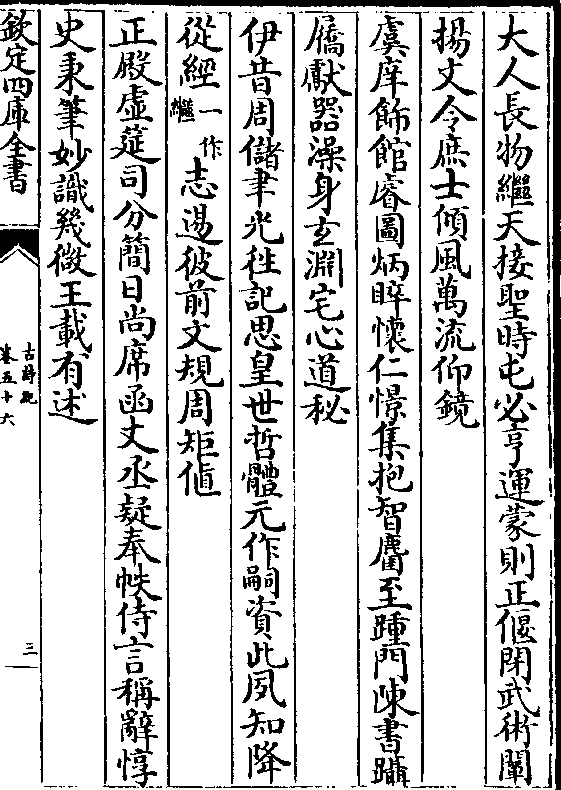 大人長物繼天接聖時屯必亨運蒙則正偃閉武術闡
揚文令庶士傾風萬流仰鏡
虞庠飾館睿圖炳睟懷仁憬集抱智麕至踵門陳書躡
屩獻器澡身玄淵宅心道秘
伊昔周儲聿光徃記思皇世哲體元作嗣資此夙知降
從經一作繼志逷彼前文規周矩值
正殿虛筵司分簡日尚席函丈丞疑奉帙侍言稱辭惇
史秉筆妙識幾微王載有述
欽定四庫全書
古詩紀
卷五十六
三